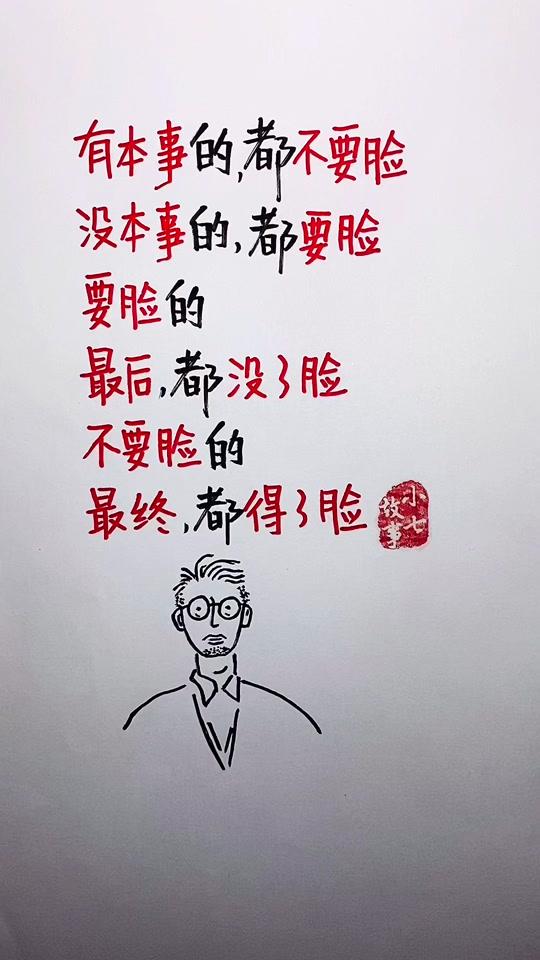 有本事的,都不要脸
没本事的,都要脸
要脸的
最后,都没了脸
不要脸的
最终,都得了脸
小七故事